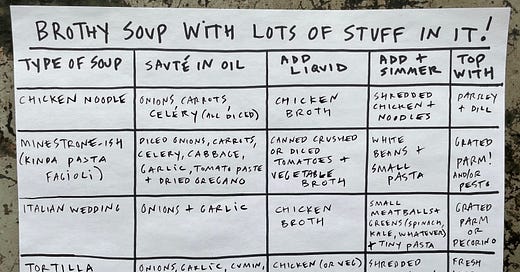 BROTHY SOUP WITH LOTS OF STUFF IN IT!
TYPE OF SOUP
SAUTÉ IN OIL
ADD
LIQUID
ADD +
SIMMER
TOP
WITH
CHICKEN NOODLE
ONIONS, CARROTS,
CELERY (ALL DICED)
CHICKEN
BROTH
SHREDDED
CHICKEN +
NOODLES
PARSLEY
+ DILL
MINESTRONE-ISH
(KINDA PASTA
FAGIOLI)
DICED ONIONS, CARROTS,
CELERY, CABBAGE,
GARLIC, TOMATO PASTE
+ DRIED OREGANO
CANNED CRUSHED
OR DICED
TOMATOES +
VEGETABLE
BROTH
WHITE
BEANS +
SMALL
PASTA
GRATED
PARM!
AND/OR
PESTO
ITALIAN WEDDING
ONIONS + GARLIC
CHICKEN
BROTH
SMALL
MEATBALLS +
GREENS (SPINACH,
KALE, WHATEVER)
+ TINY PASTA
GRATED
PARM OR
PECORINO
TORTILLA
ONIONS, GARLIC, CUMIN,
CHICKEN (OR VEG)
SHREDDED
FRESH